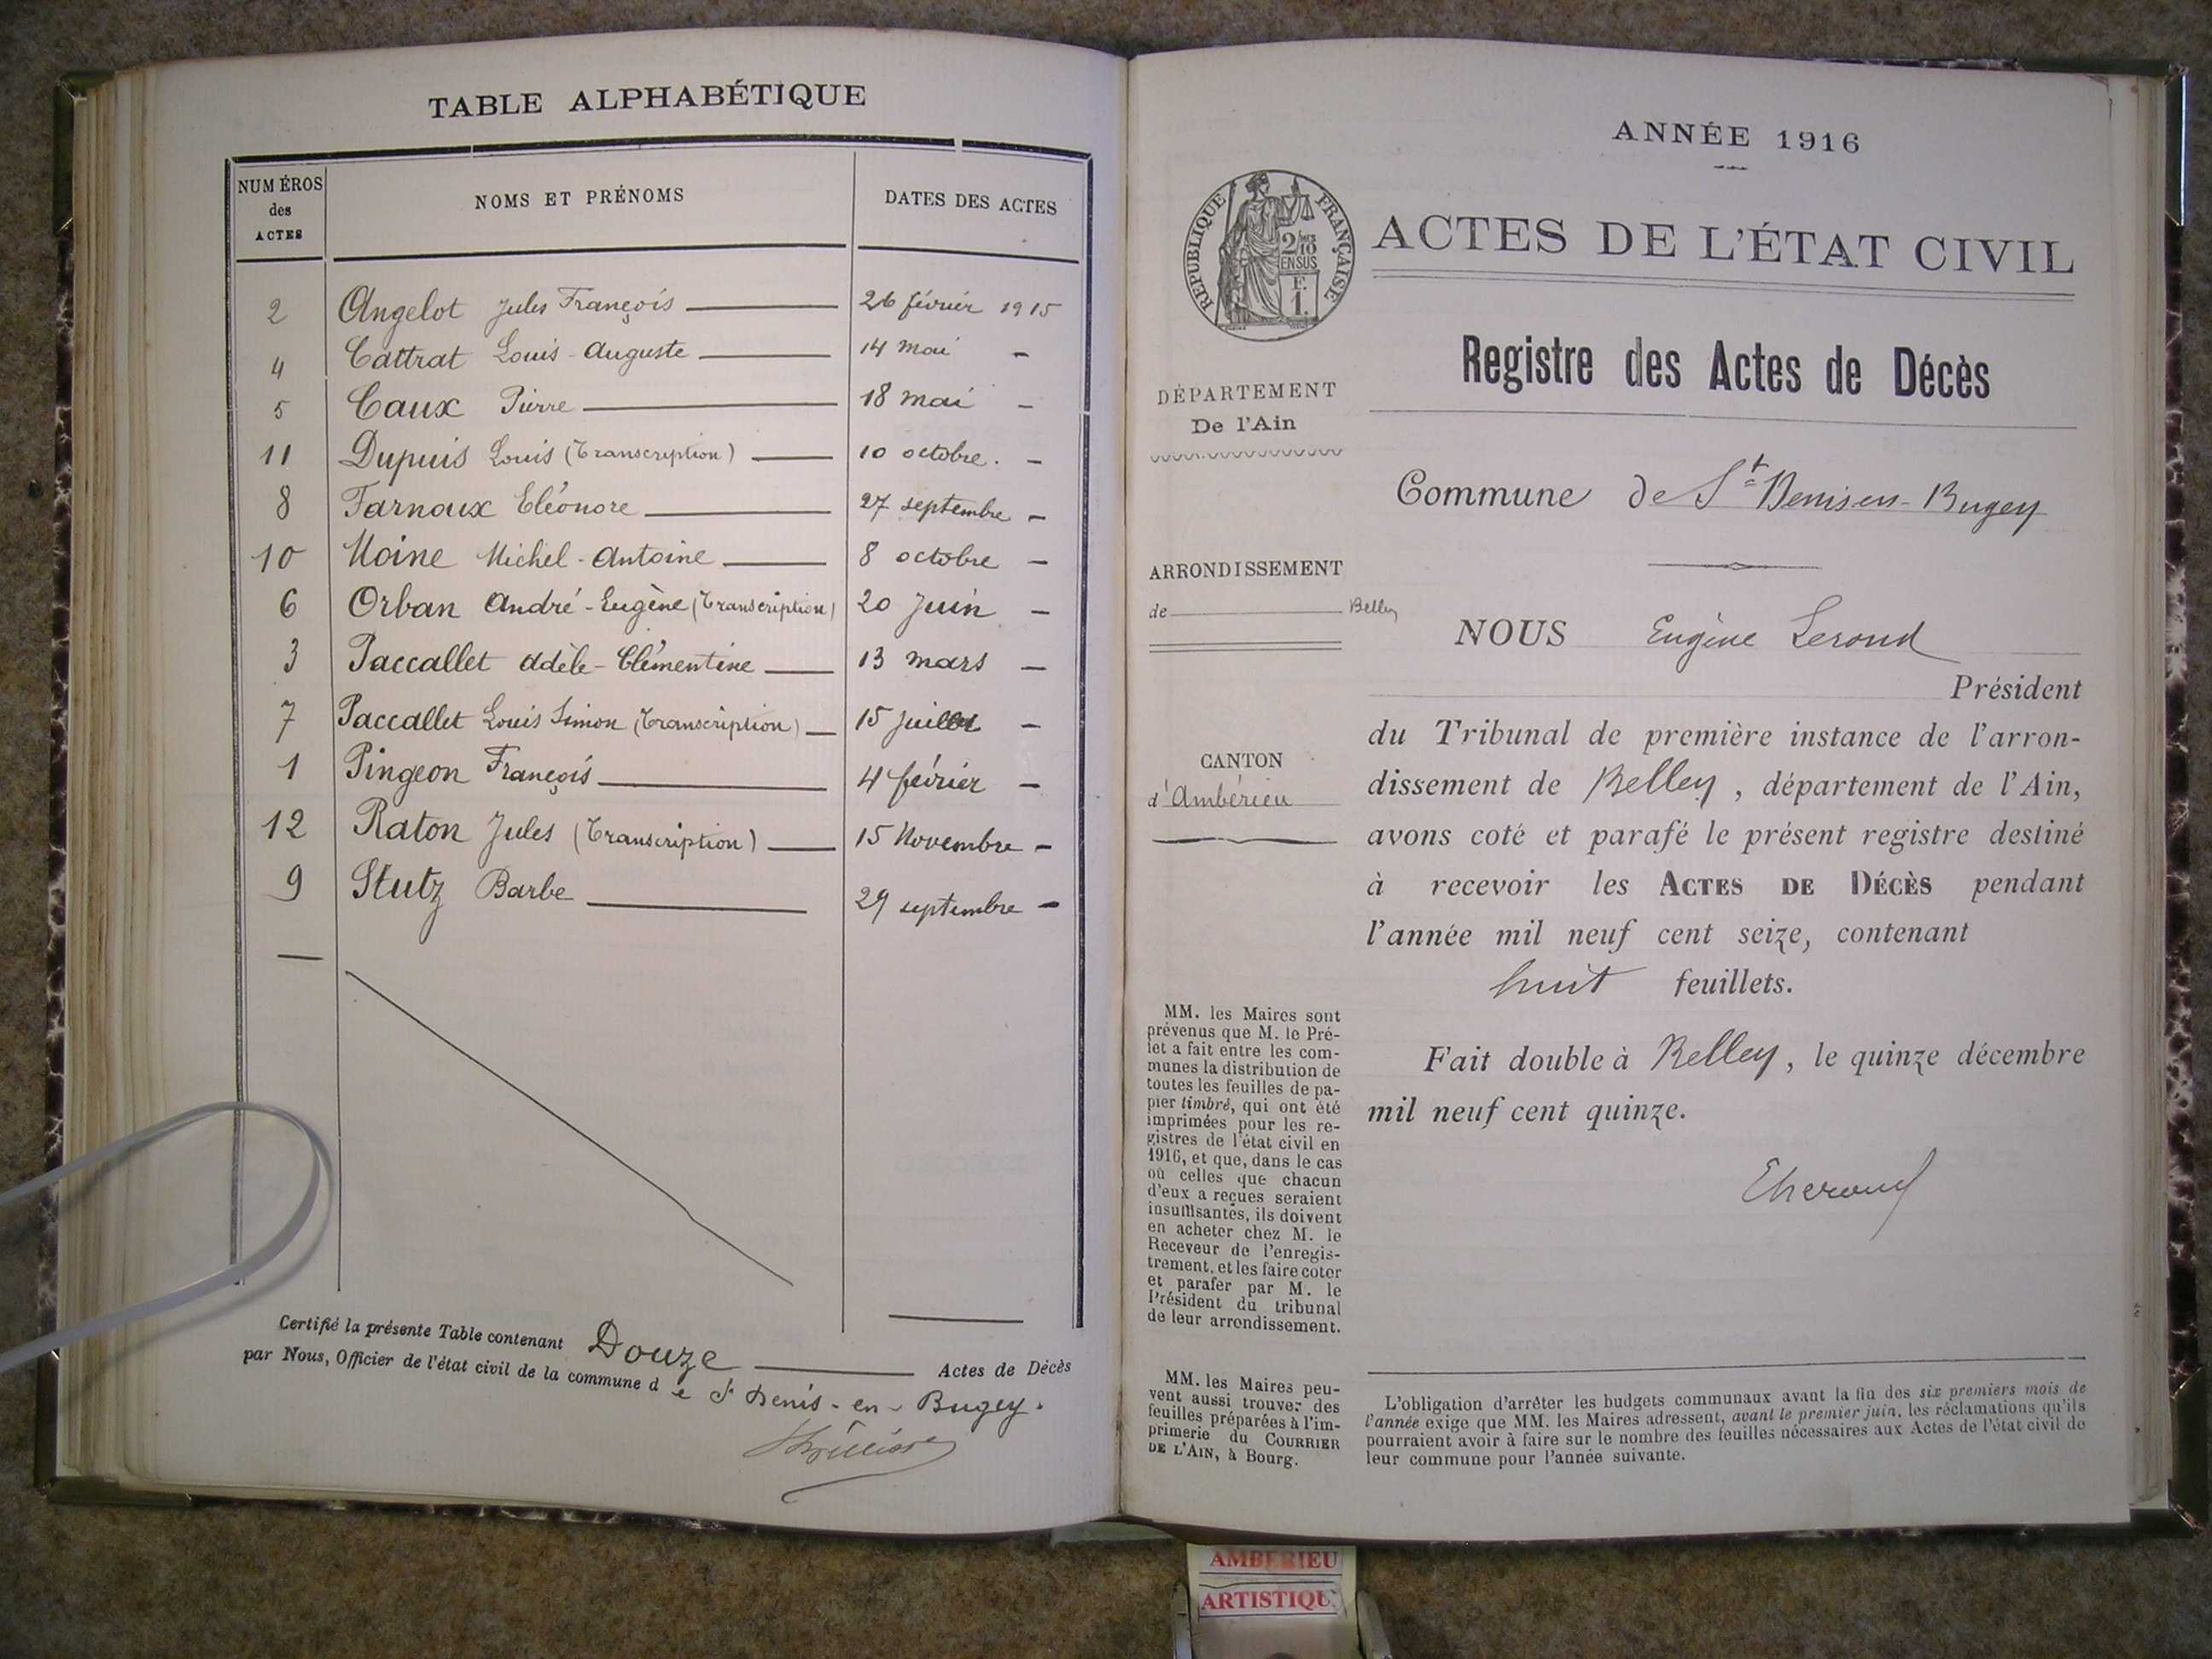 TABLE ALPHABÉTIQUE
NUMÉROS des ACTES NOMS ET PRÉNOMS DATES DES ACTES
2 Angelot Jules François 26 février 1915
4 Cattrat Louis-Auguste 14 mai –
5 Caux Pierre 18 mai –
11 Dupuis Louis (Transcription) 10 octobre. –
8 Farnoux Eléonore 27 septembre –
10 Moine Michel-Antoine 8 octobre –
6 Orban André-Eugène (Transcription) 20 Juin –
3 Paccallet Adèle-Clémentine 13 mars –
7 Paccallet Louis Simon (Transcription) 15 juillet –
1 Pingeon François 4 février –
12 Raton Jules (Transcription) 15 Novembre –
9 Stutz Barbe 29 septembre –
Certifié la présente Table contenant Douze Actes de Décès
par Nous, Officier de l'état civil de la commune de St Denis-en-Bugey.
ANNÉE 1916
RÉPUBLIQUE FRANÇAISE
2/10
EN SUS
F.
1.
ACTES DE L'ÉTAT CIVIL
Registre des Actes de Décès
DÉPARTEMENT
De l'Ain
Commune de St Denis en-Bugey
ARRONDISSEMENT
de Belley
CANTON
d'Ambérieu
MM. les Maires sont
prévenus que M. le Pré-
fet a fait entre les com-
munes la distribution de
toutes les feuilles de pa-
pier timbré, qui ont été
imprimées pour les re-
gistres de l'état civil en
1916, et que, dans le cas
où celles que chacun
d'eux a reçues seraient
insuffisantes, ils doivent
en acheter chez M. le
Receveur de l'enregis-
trement, et les faire coter
et parafer par M. le
Président du tribunal
de leur arrondissement.
MM. les Maires peu-
vent aussi trouver des
feuilles préparées à l'im-
primerie du COURRIER
DE L'AIN, à Bourg.
NOUS Eugène
Président
du Tribunal de première instance de l'arron-
dissement de Belley, département de l'Ain,
avons coté et parafé le présent registre destiné
à recevoir les ACTES DE DÉCÈS pendant
l'année mil neuf cent seize, contenant
huit feuillets.
Fait double à Belley, le quinze décembre
mil neuf cent quinze.
L'obligation d'arrêter les budgets communaux avant la fin des six premiers mois de
l'année exige que MM. les Maires adressent, avant le premier juin, les réclamations qu'ils
pourraient avoir à faire sur le nombre des feuilles nécessaires aux Actes de l'état civil de
leur commune pour l'année suivante.
AMBERIEU
ARTISTIQU